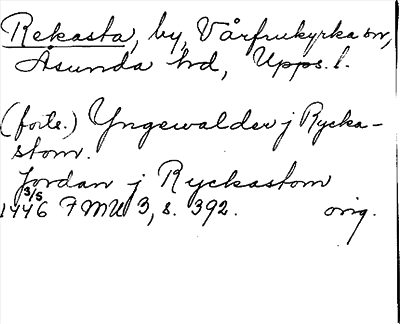 Rekasta, by, Vårfrukyrka sn,
Åsunda hd, Upps. l.
(forts.) Yngewalder j Rycka-
stom.
Jordan j Ryckastom
3/5
1446 FMU 3, s. 392. orig.